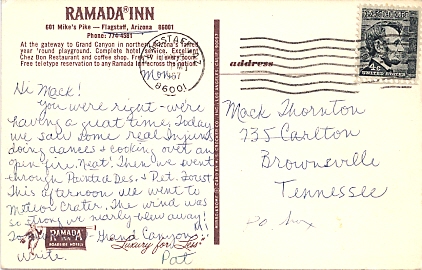 RAMADA INN
601 Mike's Pike — Flagstaff, Arizona 86001
Phone: 774-4581
At the gateway to Grand Canyon in northern Arizona's famed
year 'round playground. Complete hotel service. Excellent
Chez Bon Restaurant and coffee shop. Free TV in every room.
Free teletype reservation to any Ramada Inn across the nation.
Mon.
Hi Mack!
You were right - we're
having a great time. Today
we saw some real Injuns
doing dances & cooking over an
open fire. Neat! Then we went
through Painted Des. & Pet. Forest.
This afternoon we went to
Meteor Crater. The wind was
so strong we nearly blew away!
Grand Canyon!
write.
Pat
RAMADA
INN
ROADSIDE HOTELS
Luxury for Less
FLAGSTAFF, ARIZ
1967
86001
address
4¢
UNITED STATES
Mack Thornton
735 Carlton
Brownsville
Tennessee